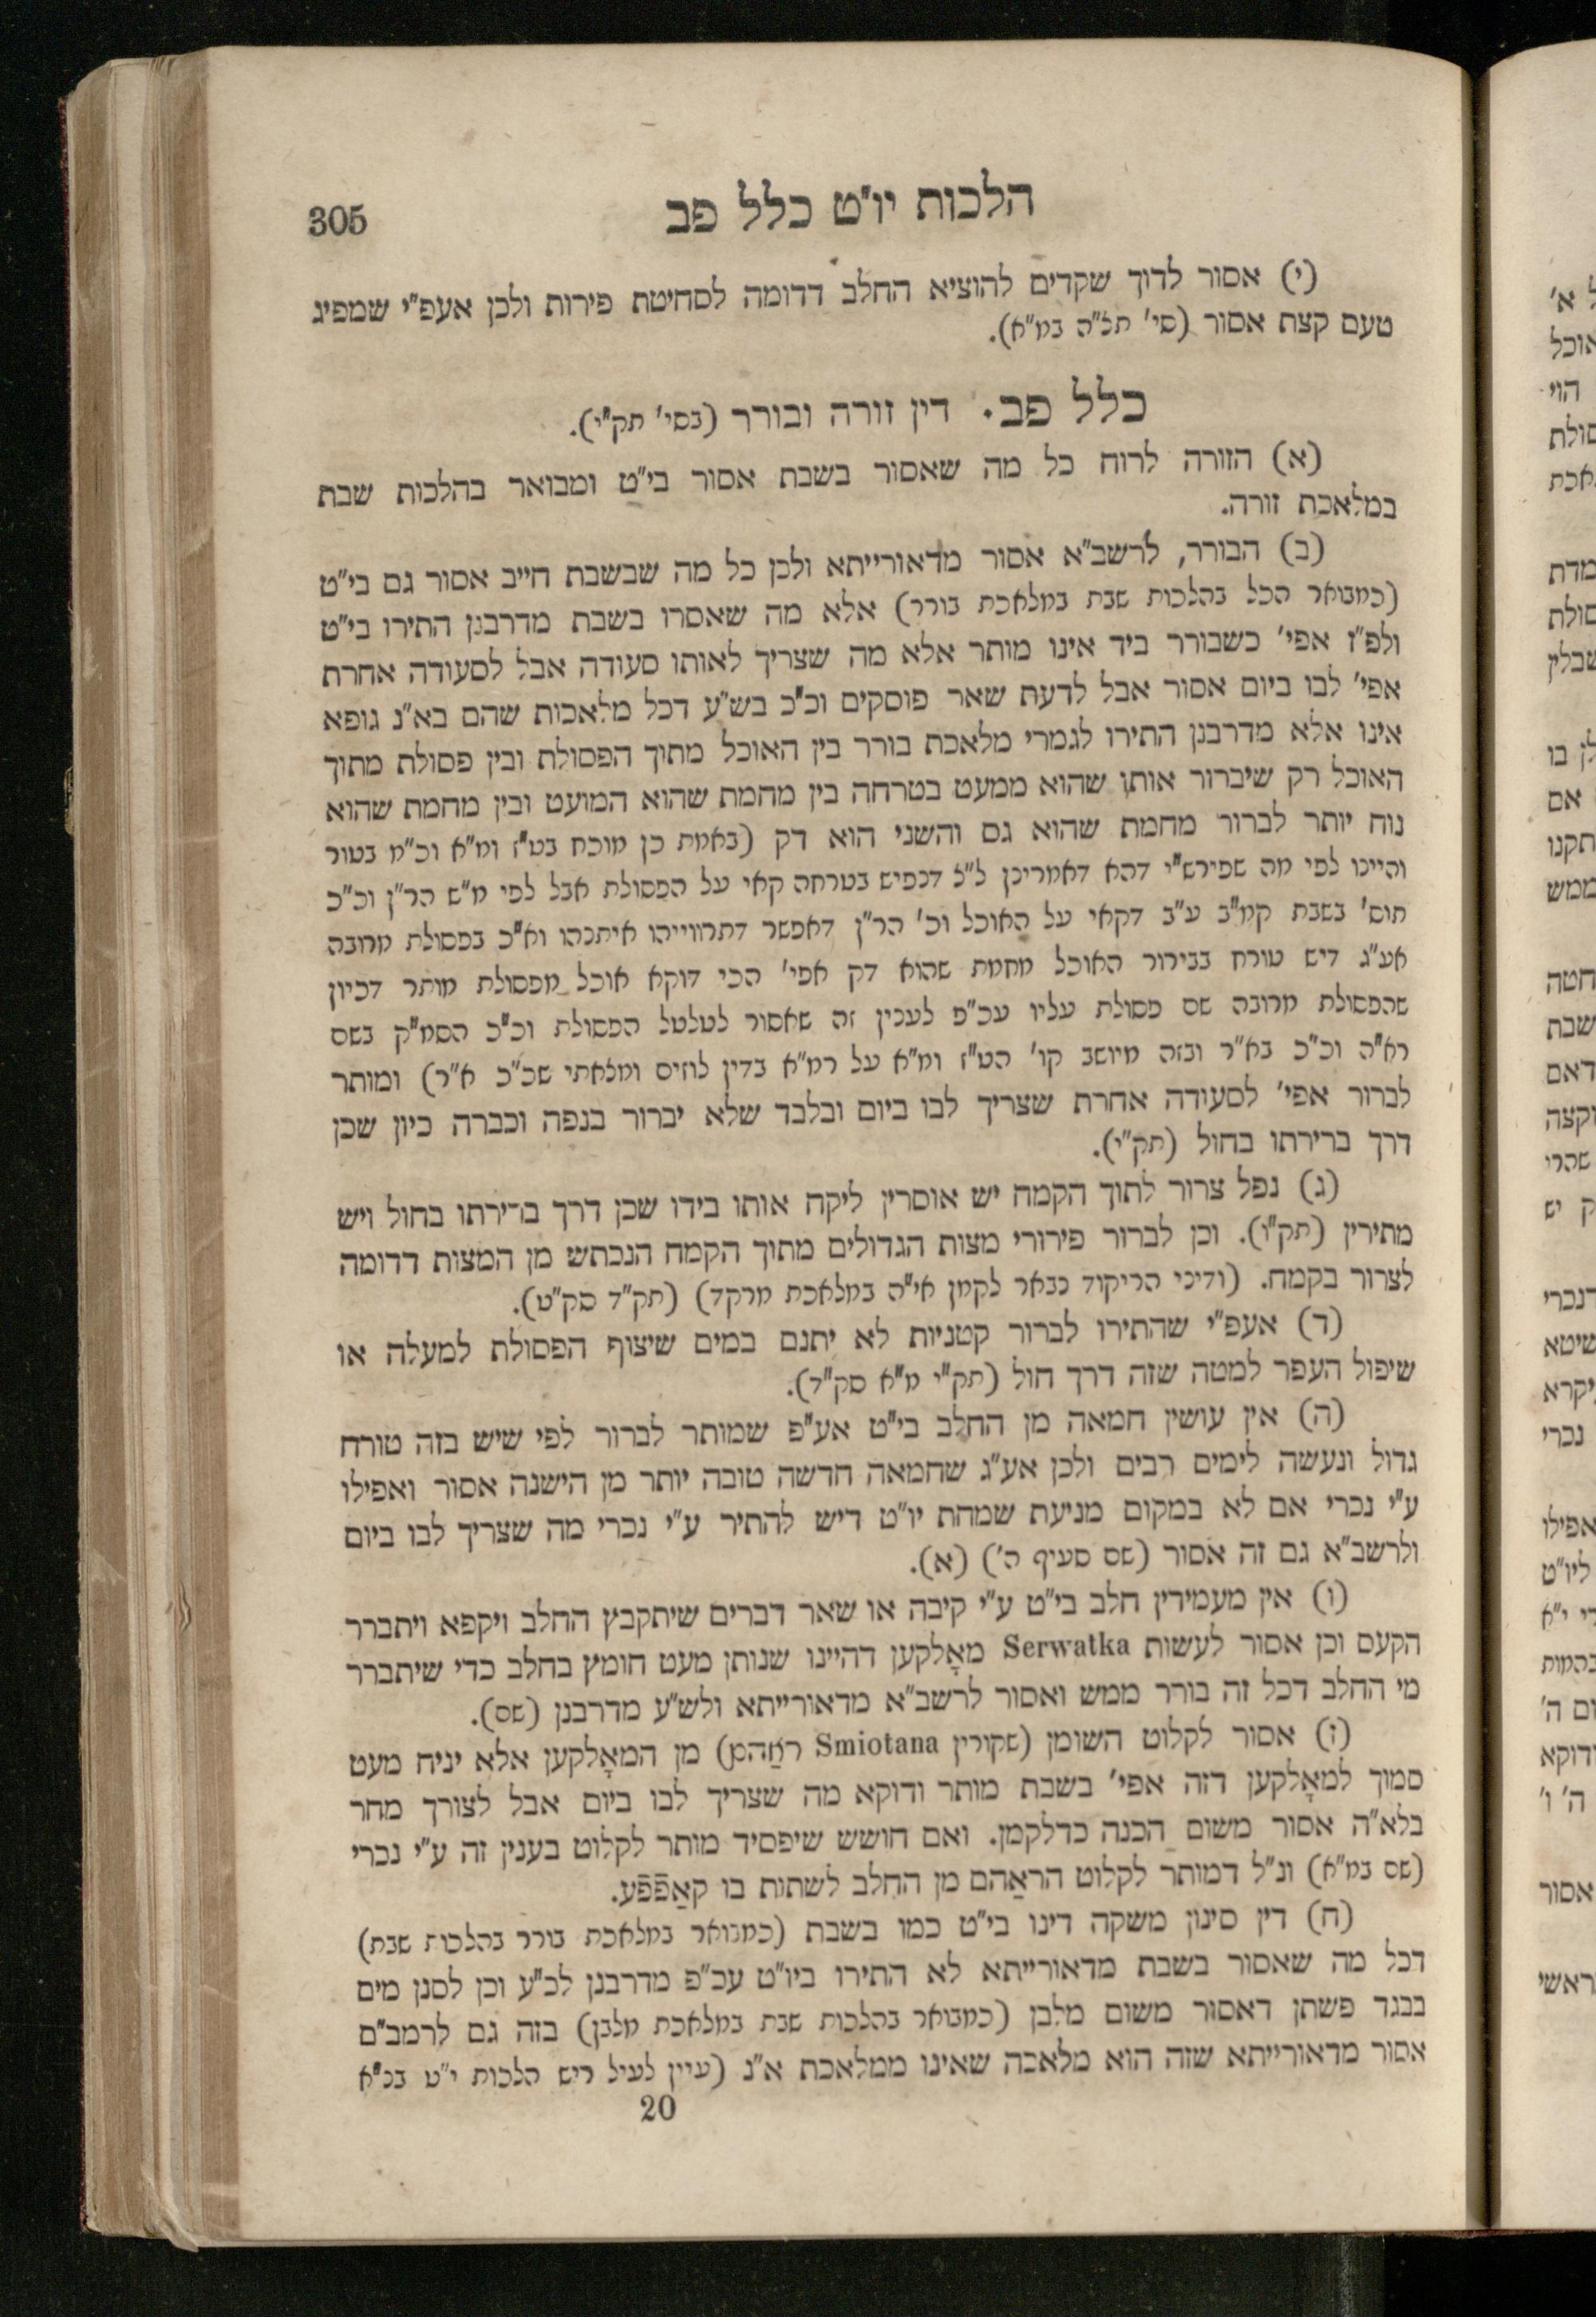 הלכות יו"ט כלל פב
305
(י) אסור לדוך שקדים להוציא החלב דדומה לסחיטת פירות ולכן אעפ"י שמפיג
טעם קצת אסור (סי' תצ"ה במ"א).
כלל פב. דין זורה ובורר (בסי' תק"י).
(א) הזורה לרוח כל מה שאסור בשבת אסור בי"ט ומבואר בהלכות שבת
במלאכת זורה.
(ב) הבורר, לרשב"א אסור מדאורייתא ולכן כל מה שבשבת חייב אסור גם בי"ט
(כמבואר הכל בהלכות שבת במלאכת בורר) אלא מה שאסרו בשבת מדרבנן התירו בי"ט
ולפ"ז אפי' כשבורר ביד אינו מותר אלא מה שצריך לאותו סעודה אבל לסעודה אחרת
אפי' לבו ביום אסור אבל לדעת שאר פוסקים וכ"כ בש"ע דכל מלאכות שהם בא"נ גופא
אינו אלא מדרבנן התירו לגמרי מלאכת בורר בין האוכל מתוך הפסולת ובין פסולת מתוך
האוכל רק שיברור אותו שהוא ממעט בטרחה בין מחמת שהוא המועט ובין מחמת שהוא
נוח יותר לברור מחמת שהוא גם והשני הוא דק (באמת כן מוכח בט"ז ומ"א וכ"מ בטור
והיינו לפי מה שפירש"י דהא דאמרינן ל"ל דנפיש בטרחה קאי על הפסולת אבל לפי מ"ש הר"ן וכ"כ
תוס' בשבת קמ"ב ע"ב דקאי על האוכל וכ' הר"ן דאפשר דתרווייהו איתנהו וא"כ בפסולת מרובה
אע"ג דיש טורח בבירור האוכל מחמת שהוא דק אפי' הכי דוקא אוכל מפסולת מותר דכיון
שהפסולת מרובה שם פסולת עליו עכ"פ לענין זה שאסור לטלטל הפסולת וכ"כ הסמ"ק בשם
רא"ה וכ"כ בא"ר ובזה מיושב קו' הט"ז ומ"א על רמ"א בדין לוזים ומצאתי שכ"כ א"ר) ומותר
לברור אפי' לסעודה אחרת שצריך לבו ביום ובלבד שלא יברור בנפה וכברה כיון שכן
דרך ברירתו בחול (תק"י).
(ג) נפל צרור לתוך הקמח יש אוסרין ליקח אותו בידו שכן דרך ברירתו בחול ויש
מתירין (תק"ו). וכן לברור פירורי מצות הגדולים מתוך הקמח הנכתש מן המצות דדומה
לצרור בקמח. (ודיני הריקוד נבאר לקמן אי"ה במלאכת מרקד) (תק"ד סק"ט).
(ד) אעפ"י שהתירו לברור קטניות לא יתנם במים שיצוף הפסולת למעלה או
שיפול העפר למטה שזה דרך חול (תק"י מ"א סק"ד).
(ה) אין עושין חמאה מן החלב בי"ט אע"פ שמותר לברור לפי שיש בזה טורח
גדול ונעשה לימים רבים ולכן אע"ג שחמאה חדשה טובה יותר מן הישנה אסור ואפילו
ע"י נכרי אם לא במקום מניעת שמחת יו"ט דיש להתיר ע"י נכרי מה שצריך לבו ביום
ולרשב"א גם זה אסור (שם סעיף ה') (א).
(ו) אין מעמידין חלב בי"ט ע"י קיבה או שאר דברים שיתקבץ החלב ויקפא ויתברר
הקעם וכן אסור לעשות Serwatka מאָלקען דהיינו שנותן מעט חומץ בחלב כדי שיתברר
מי החלב דכל זה בורר ממש ואסור לרשב"א מדאורייתא ולש"ע מדרבנן (שם).
(ז) אסור לקלוט השומן (שקורין Smiotana ראַהם) מן המאָלקען אלא יניח מעט
סמוך למאָלקען דזה אפי' בשבת מותר ודוקא מה שצריך לבו ביום אבל לצורך מחר
בלא"ה אסור משום הכנה כדלקמן. ואם חושש שיפסיד מותר לקלוט בענין זה ע"י נכרי
(שם במ"א) ונ"ל דמותר לקלוט הראַהם מן החלב לשתות בו קאַפֿפֿע.
(ח) דין סינון משקה דינו בי"ט כמו בשבת (כמבואר במלאכת בורר בהלכות שבת)
דכל מה שאסור בשבת מדאורייתא לא התירו ביו"ט עכ"פ מדרבנן לכ"ע וכן לסנן מים
בבגד פשתן דאסור משום מלבן (כמבואר בהלכות שבת במלאכת מלבן) בזה גם לרמב"ם
אסור מדאורייתא שזה הוא מלאכה שאינו ממלאכת א"נ (עיין לעיל ריש הלכות י"ט בנ"א
20